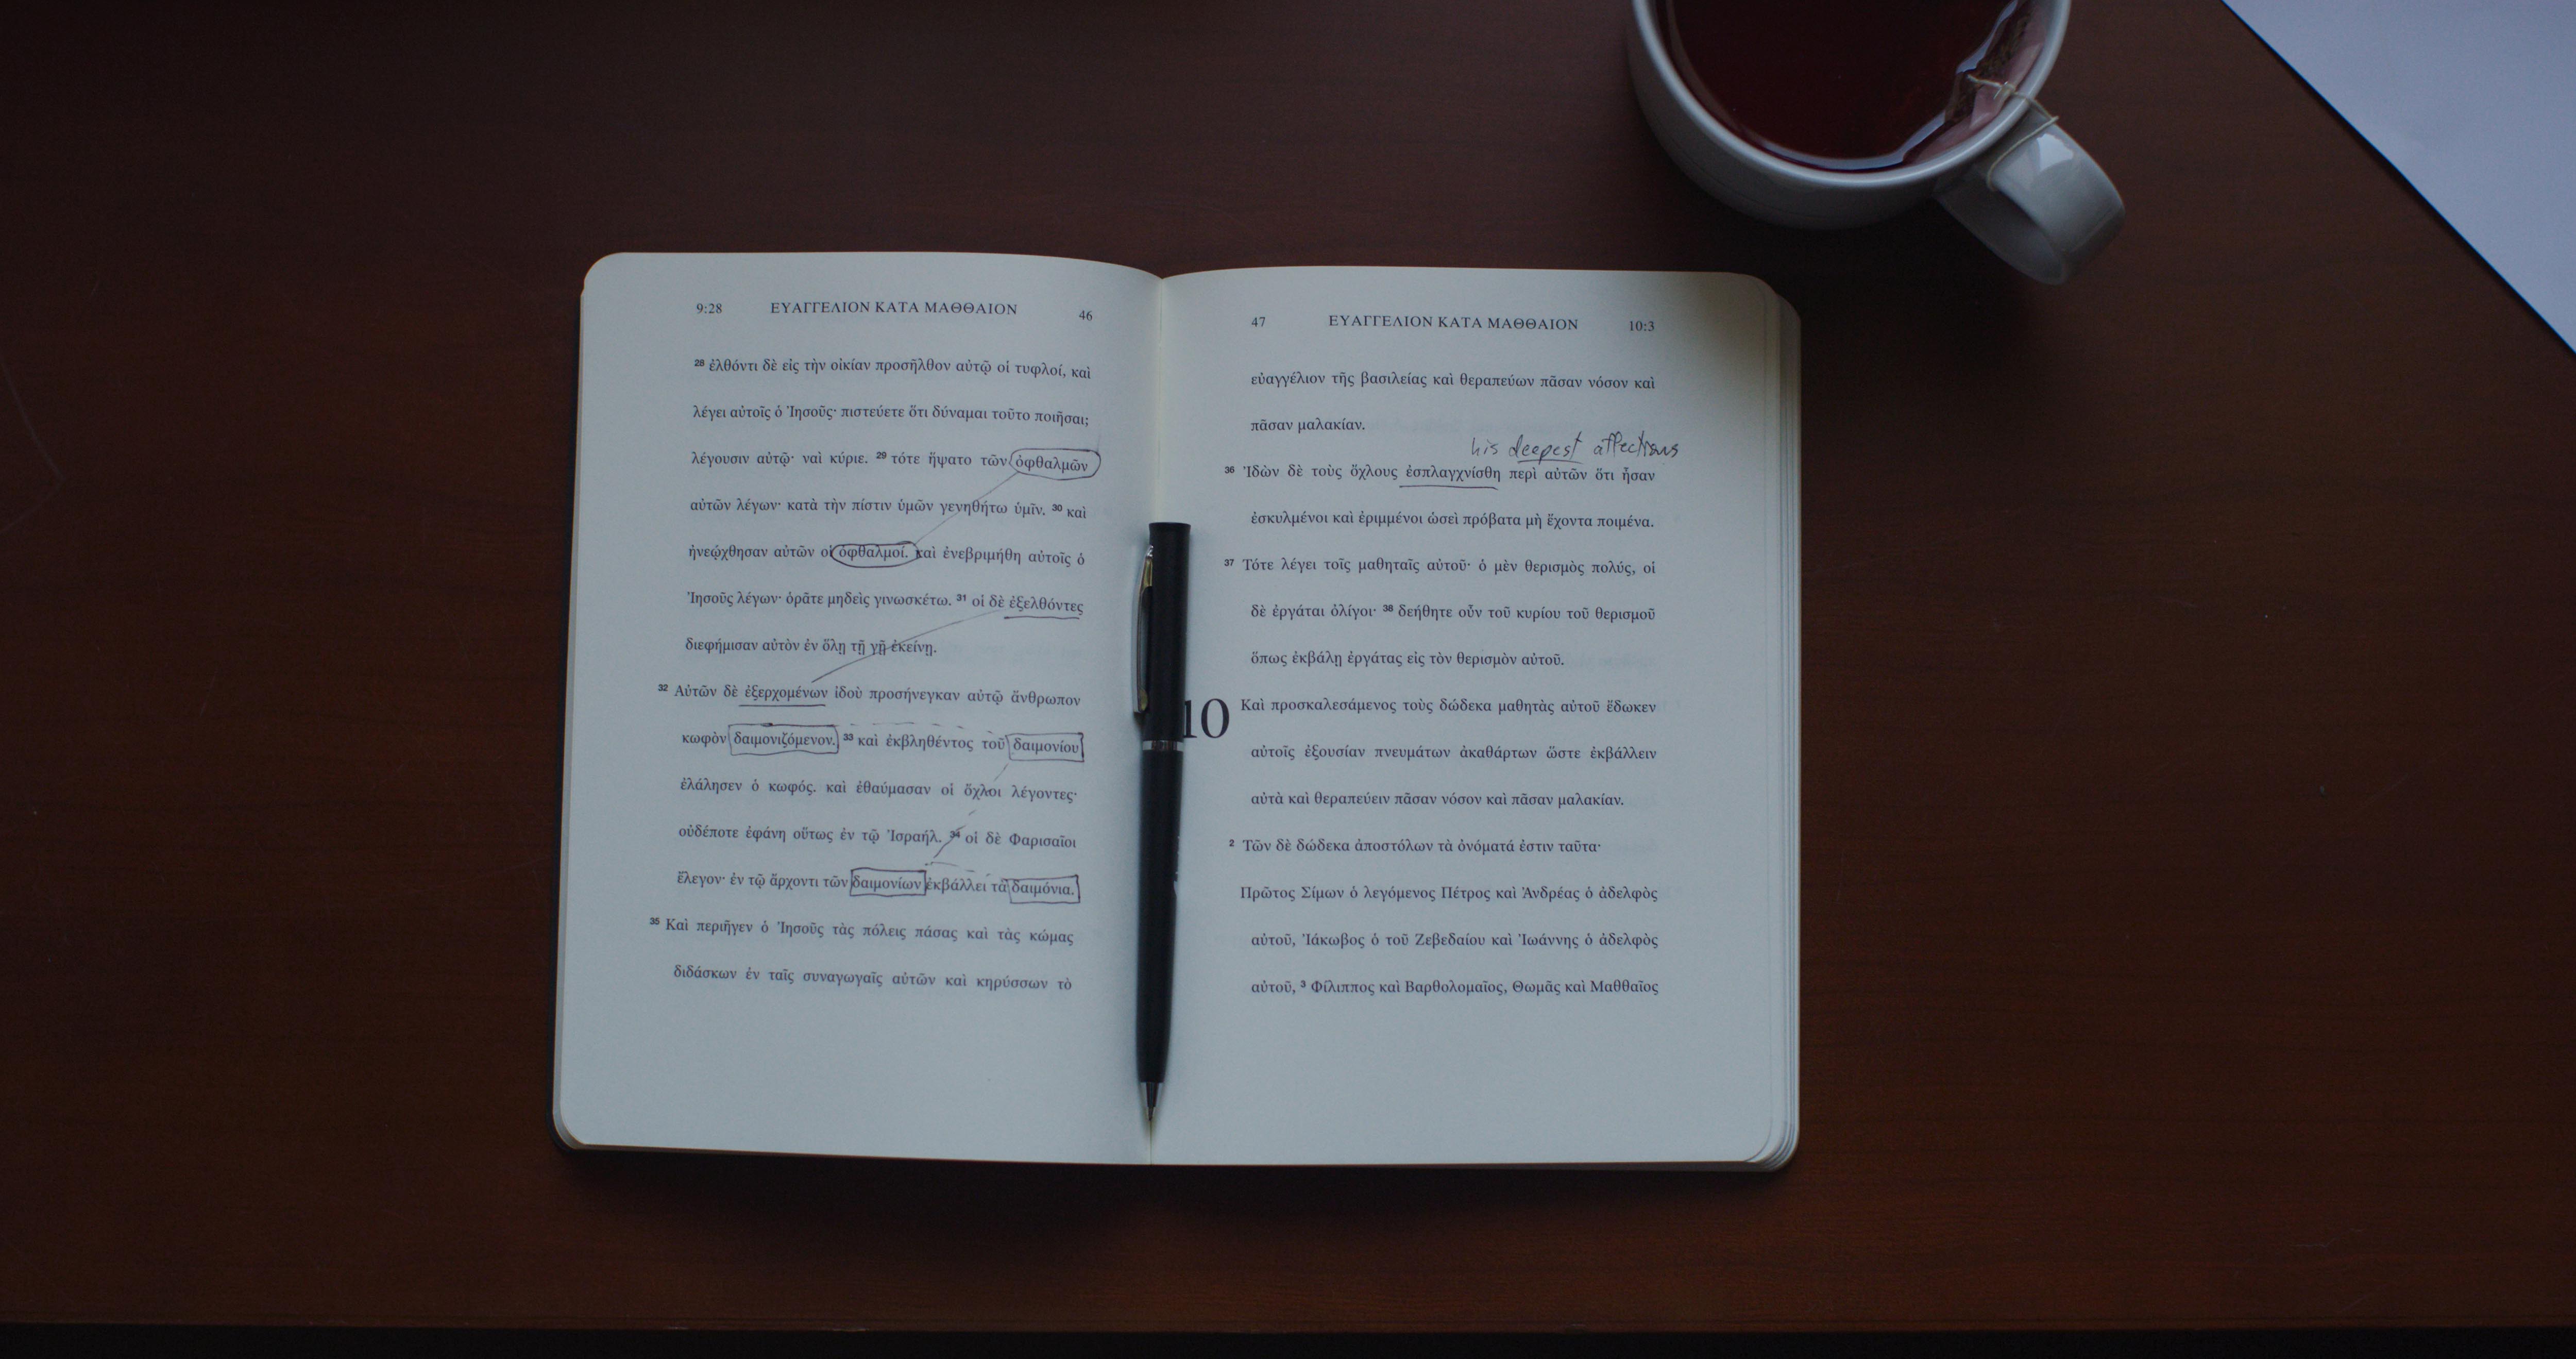 9:28 ΕΥΑΓΓΕΛΙΟΝ ΚΑΤΑ ΜΑΘΘΑΙΟΝ 46
28 ἐλθόντι δὲ εἰς τὴν οἰκίαν προσῆλθον αὐτῷ οἱ τυφλοί, καὶ
λέγει αὐτοῖς ὁ Ἰησοῦς· πιστεύετε ὅτι δύναμαι τοῦτο ποιῆσαι;
λέγουσιν αὐτῷ· ναὶ κύριε. 29 τότε ἥψατο τῶν ὀφθαλμῶν
αὐτῶν λέγων· κατὰ τὴν πίστιν ὑμῶν γενηθήτω ὑμῖν. 30 καὶ
ἠνεῴχθησαν αὐτῶν οἱ ὀφθαλμοί. καὶ ἐνεβριμήθη αὐτοῖς ὁ
Ἰησοῦς λέγων· ὁρᾶτε μηδεὶς γινωσκέτω. 31 οἱ δὲ ἐξελθόντες
διεφήμισαν αὐτὸν ἐν ὅλῃ τῇ γῇ ἐκείνῃ.
32 Αὐτῶν δὲ ἐξερχομένων ἰδοὺ προσήνεγκαν αὐτῷ ἄνθρωπον
κωφὸν δαιμονιζόμενον. 33 καὶ ἐκβληθέντος τοῦ δαιμονίου
ἐλάλησεν ὁ κωφός. καὶ ἐθαύμασαν οἱ ὄχλοι λέγοντες·
οὐδέποτε ἐφάνη οὕτως ἐν τῷ Ἰσραήλ. 34 οἱ δὲ Φαρισαῖοι
ἔλεγον· ἐν τῷ ἄρχοντι τῶν δαιμονίων ἐκβάλλει τὰ δαιμόνια.
35 Καὶ περιῆγεν ὁ Ἰησοῦς τὰς πόλεις πάσας καὶ τὰς κώμας
διδάσκων ἐν ταῖς συναγωγαῖς αὐτῶν καὶ κηρύσσων τὸ
47 ΕΥΑΓΓΕΛΙΟΝ ΚΑΤΑ ΜΑΘΘΑΙΟΝ 10:3
εὐαγγέλιον τῆς βασιλείας καὶ θεραπεύων πᾶσαν νόσον καὶ
πᾶσαν μαλακίαν.
his deepest affections
36 Ἰδὼν δὲ τοὺς ὄχλους ἐσπλαγχνίσθη περὶ αὐτῶν ὅτι ἦσαν
ἐσκυλμένοι καὶ ἐριμμένοι ὡσεὶ πρόβατα μὴ ἔχοντα ποιμένα.
37 Τότε λέγει τοῖς μαθηταῖς αὐτοῦ· ὁ μὲν θερισμὸς πολύς, οἱ
δὲ ἐργάται ὀλίγοι· 38 δεήθητε οὖν τοῦ κυρίου τοῦ θερισμοῦ
ὅπως ἐκβάλῃ ἐργάτας εἰς τὸν θερισμὸν αὐτοῦ.
10 Καὶ προσκαλεσάμενος τοὺς δώδεκα μαθητὰς αὐτοῦ ἔδωκεν
αὐτοῖς ἐξουσίαν πνευμάτων ἀκαθάρτων ὥστε ἐκβάλλειν
αὐτὰ καὶ θεραπεύειν πᾶσαν νόσον καὶ πᾶσαν μαλακίαν.
2 Τῶν δὲ δώδεκα ἀποστόλων τὰ ὀνόματά ἐστιν ταῦτα·
Πρῶτος Σίμων ὁ λεγόμενος Πέτρος καὶ Ἀνδρέας ὁ ἀδελφὸς
αὐτοῦ, Ἰάκωβος ὁ τοῦ Ζεβεδαίου καὶ Ἰωάννης ὁ ἀδελφὸς
αὐτοῦ, 3 Φίλιππος καὶ Βαρθολομαῖος, Θωμᾶς καὶ Μαθθαῖος